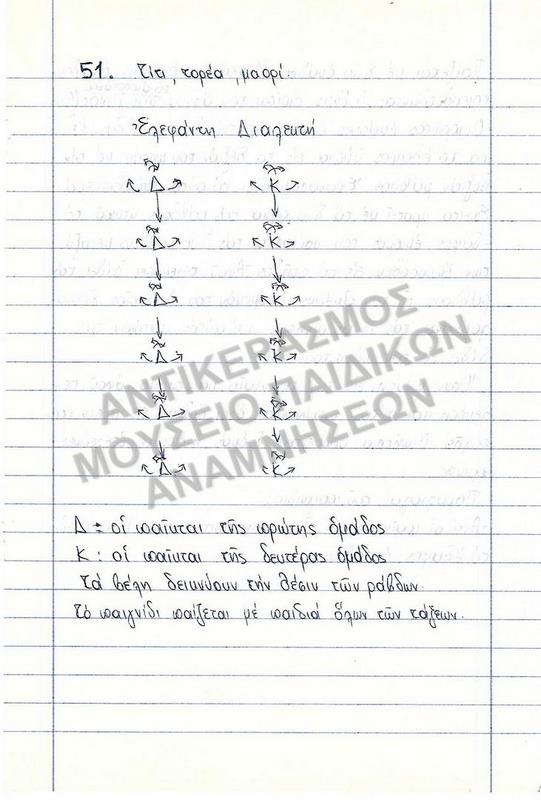 51. Τίτι, τορέα, μαορί.
Ἐλεφάντη Διαλεκτή
Δ Κ
Δ Κ
Δ Κ
Δ Κ
Δ Κ
Δ Κ
ΑΝΤΙΚΕΡΑΣΜΟΣ
ΜΟΥΣΕΙΟ ΠΑΙΔΙΚΩΝ
ΑΝΑΜΝΗΣΕΩΝ
Δ = οἱ παῖκται τῆς πρώτης ὁμάδος
Κ : οἱ παῖκται τῆς δευτέρας ὁμάδος
Τά βέλη δεικνύουν τήν θέσιν τῶν ράβδων.
Τό παιχνίδι παίζεται μέ παιδιά ὅλων τῶν τάξεων.